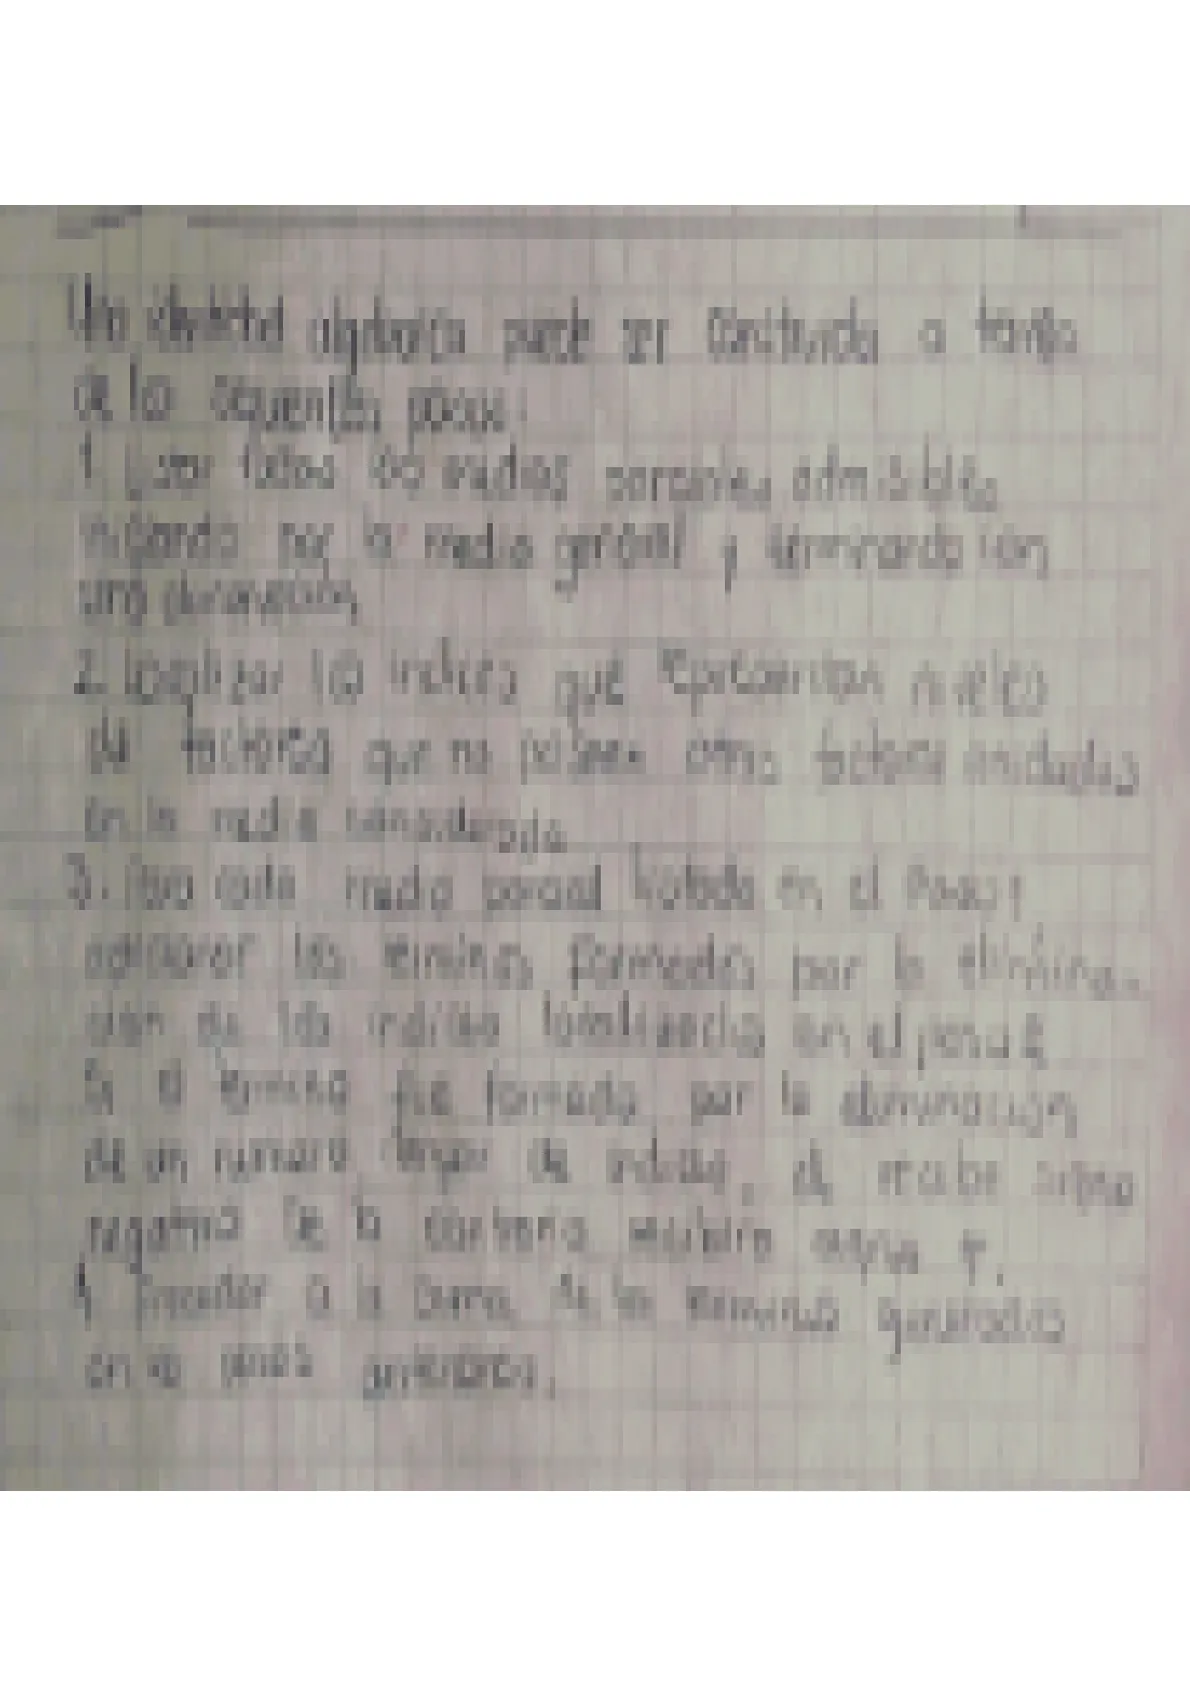 Una identidad algebraica puede ser construida a través
de los siguientes pasos:
1. Listar todas las medias parciales admisibles
iniciando por la media general y terminando con
una observación
2. Localizar los indices que representan niveles
de factores que no poseen otros factores anidados
en la media considerada
3. Para cada media parcial listada en el Paso 1
los términos formados por la elimina-
ción de los indices localizados en el paso 2
Si el término fue formado por la eliminación
de un número impar de indices, el recibe signo
negativo De lo contrario recibira signo +.
4. Proceder a la suma de los términos generados
en los pasos anteriores.